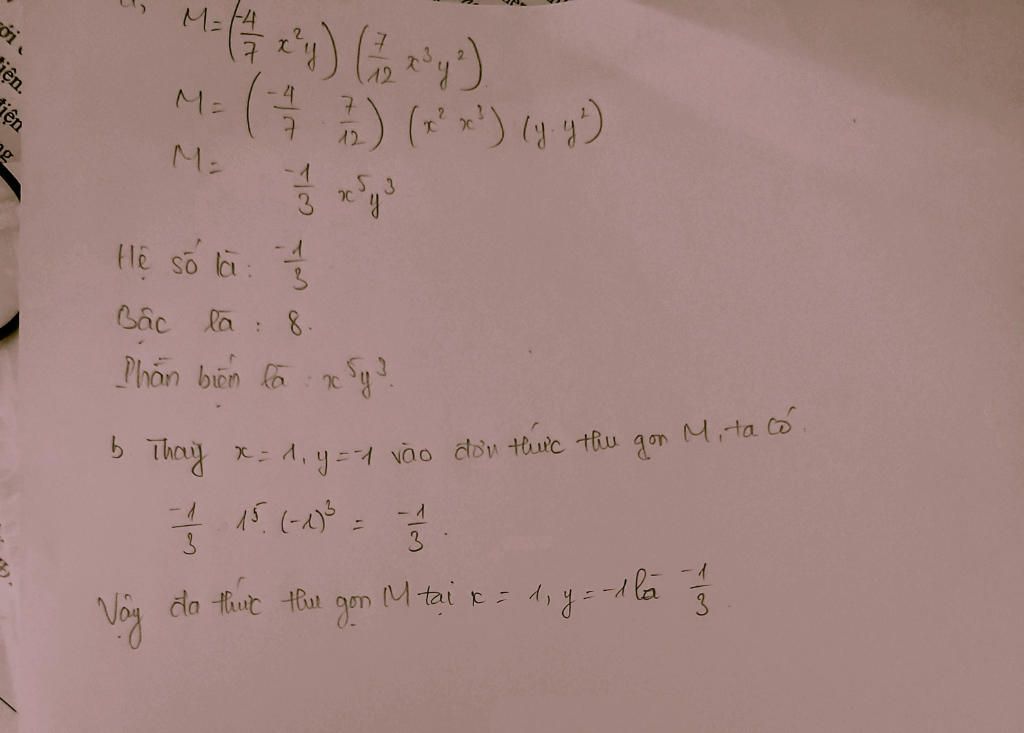 a,
M = (-4/7 x²y) (7/12 x³y²)
M = (-4/7 . 7/12) (x² x³) (y. y²)
M = -1/3 x⁵y³
Hệ số là: -1/3
Bậc là : 8.
Phần biến là : x⁵y³.
b Thay x = 1, y = -1 vào đơn thức thu gọn M, ta có
-1/3 1⁵. (-1)³ = -1/3 .
Vậy đa thức thu gọn M tại x = 1, y = -1 là -1/3